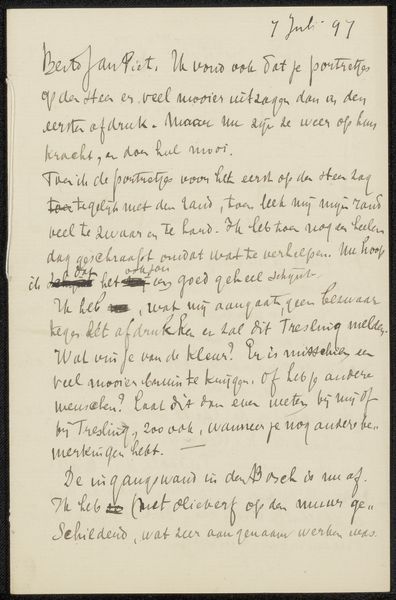 7 Juli 97
Beste Jan Piet. Ik vond ook dat je portretjes
op den steen er veel mooier uitzagen dan in den
eersten afdruk. Maar nu zijn ze weer op hun
kracht, en doen heel mooi.
Toen ik de portretjes voor het eerst op den steen zag
tegelijk met den rand, toen leek mij mijn rand
veel te zwaar en te hard. Ik heb toen nog een heelen
dag geschraapt om dat wat te verhelpen. Nu hoop
ik dat het een goed geheel schijnt.
Ik heb , wat mij aangaat, geen bezwaar
tegen het afdrukken en zal dit Tresling melden.
Wat vin je van de kleur? Er is misschien een
veel mooier bruin te krijgen. Of heb je andere
menschen? Laat dit dan even weten bij mij of
bij Tresling, zoo ook, wanneer je nog andere be-
merkingen hebt. —
De ingangswand in den Bosch is nu af.
Ik heb (met olieverf op den muur ge-
schilderd, wat zeer aangenaam werken was.